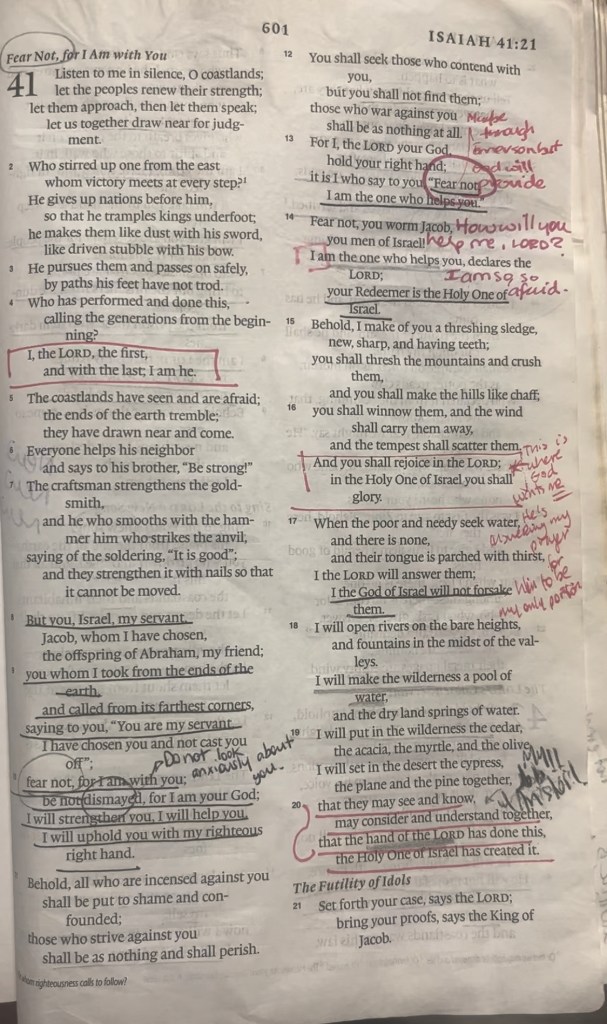 601
ISAIAH 41:21
Fear Not, for I Am with You
41 Listen to me in silence, O coastlands;
let the peoples renew their strength;
let them approach, then let them speak;
let us together draw near for judg-
ment.
2 Who stirred up one from the east
whom victory meets at every step?¹
He gives up nations before him,
so that he tramples kings underfoot;
he makes them like dust with his sword,
like driven stubble with his bow.
3 He pursues them and passes on safely,
by paths his feet have not trod.
4 Who has performed and done this,
calling the generations from the begin-
ning?
I, the LORD, the first,
and with the last; I am he.
5 The coastlands have seen and are afraid;
the ends of the earth tremble;
they have drawn near and come.
6 Everyone helps his neighbor
and says to his brother, "Be strong!"
7 The craftsman strengthens the gold-
smith,
and he who smooths with the ham-
mer him who strikes the anvil,
saying of the soldering, "It is good";
and they strengthen it with nails so that
it cannot be moved.
8 But you, Israel, my servant,
Jacob, whom I have chosen,
the offspring of Abraham, my friend;
9 you whom I took from the ends of the
earth,
and called from its farthest corners,
saying to you, "You are my servant,
I have chosen you and not cast you
off";
Do not look
anxiously about
you.
fear not, for I am with you;
be not dismayed, for I am your God;
I will strengthen you, I will help you,
I will uphold you with my righteous
right hand.
Behold, all who are incensed against you
shall be put to shame and con-
founded;
those who strive against you
shall be as nothing and shall perish.
whom righteousness calls to follow?
12 You shall seek those who contend with
you,
but you shall not find them;
those who war against you
shall be as nothing at all.
13 For I, the LORD your God,
hold your right hand;
it is I who say to you, "Fear not,
I am the one who helps you."
Maybe
through
and will
provide
14 Fear not, you worm Jacob,
you men of Israel!
I am the one who helps you, declares the
LORD;
your Redeemer is the Holy One of
Israel.
How will you
help me, LORD?
I am so so
afraid.
15 Behold, I make of you a threshing sledge,
new, sharp, and having teeth;
you shall thresh the mountains and crush
them,
and you shall make the hills like chaff;
16 you shall winnow them, and the wind
shall carry them away,
and the tempest shall scatter them.
And you shall rejoice in the LORD;
in the Holy One of Israel you shall
glory.
This is
where
God
wants me
17 When the poor and needy seek water,
and there is none,
and their tongue is parched with thirst,
I the LORD will answer them;
I the God of Israel will not forsake
them.
He is
answering my
prayer
for
Him to be
my only portion
18 I will open rivers on the bare heights,
and fountains in the midst of the val-
leys.
I will make the wilderness a pool of
water,
and the dry land springs of water.
19 I will put in the wilderness the cedar,
the acacia, the myrtle, and the olive.
I will set in the desert the cypress,
the plane and the pine together,
20 that they may see and know,
may consider and understand together,
that the hand of the LORD has done this,
the Holy One of Israel has created it.
The Futility of Idols
21 Set forth your case, says the LORD;
bring your proofs, says the King of
Jacob.